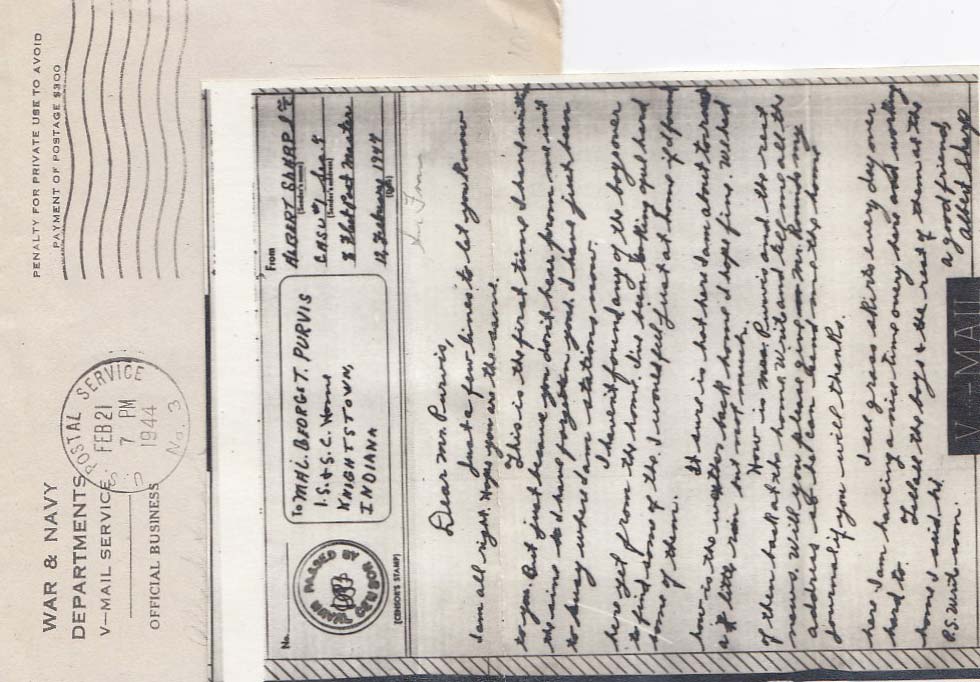 WAR & NAVY
DEPARTMENTS
V—MAIL SERVICE
OFFICIAL BUSINESS
U S POSTAL SERVICE
FEB 21
7 PM
1944
No. 3
PENALTY FOR PRIVATE USE TO AVOID
PAYMENT OF POSTAGE $300
No.
PASSED BY
NAVAL CENSOR
(CENSOR'S STAMP)
To MR. GEORGE T. PURVIS
I.S. & S.C. Home
KNIGHTSTOWN,
INDIANA
From
ALBERT SHARP
(Sender's name)
CASU
(Sender's address)
% Fleet Post Master
12, February 1944
(Date)
Dear Mr. Purvis,
Just a few lines to let you know
I am all right. Hope you are the same.
This is the first time I have wrote
to you. But just because you don't hear from me isn't
the same as to have forgotten you. I have just been
to busy where I am station now.
I haven't found any of the boys over
here yet from the home. I've been looking quite hard
to find some of them. I would feel just at home if I found
some of them.
It sure is hot here I am about to roast
how is the weather back home I hope fine. We had
a little rain but not much.
How is Mrs. Purvis and the rest
of them back at the home. Write and tell me all the
news. Will you please give Mr. Rounds my
address so he can send me the home
journal if you will thanks.
I see grass skirts every day over
here. I am having a nice time over here and working
hard to. Tell all the boys & the rest of them at the
home I said hi.
a good friend,
Albert Sharp
P.S. Write soon.
V-MAIL